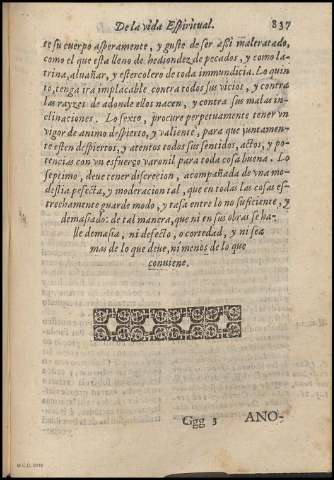 De la vida Espiritual. 837
te su cuerpo asperamente, y guste de ser assi maleratado,
como el que esta lleno de hediondez de pecados, y como la-
trina, aluañar, y estercolero de toda immundicia. Lo quin
to, tenga ira implacable contra todos sus vicios, y contra
las rayzes de adonde ellos nacen, y contra sus malas in-
clinaciones. Lo sexto, procure perpetuamente tener vn
vigor de animo despierto, y valiente, para que juntamen-
te esten despiertos, y atentos todos sus sentidos, actos, y po-
tencias con vn esfuerço varonil para toda cosa buena. Lo
septimo, deue tener discrecion, acompañada de vna mo-
destia pefecta, y moderacion tal, que en todas las cosas es-
trechamente guarde modo, y tasa entre lo no suficiente, y
demasiado: de tal manera, que ni en sus obras se ha-
lle demasia, ni defecto, o cortedad, y ni sea
mas de lo que deue, ni menos de lo que
conuiene.
Ggg 3 ANO-